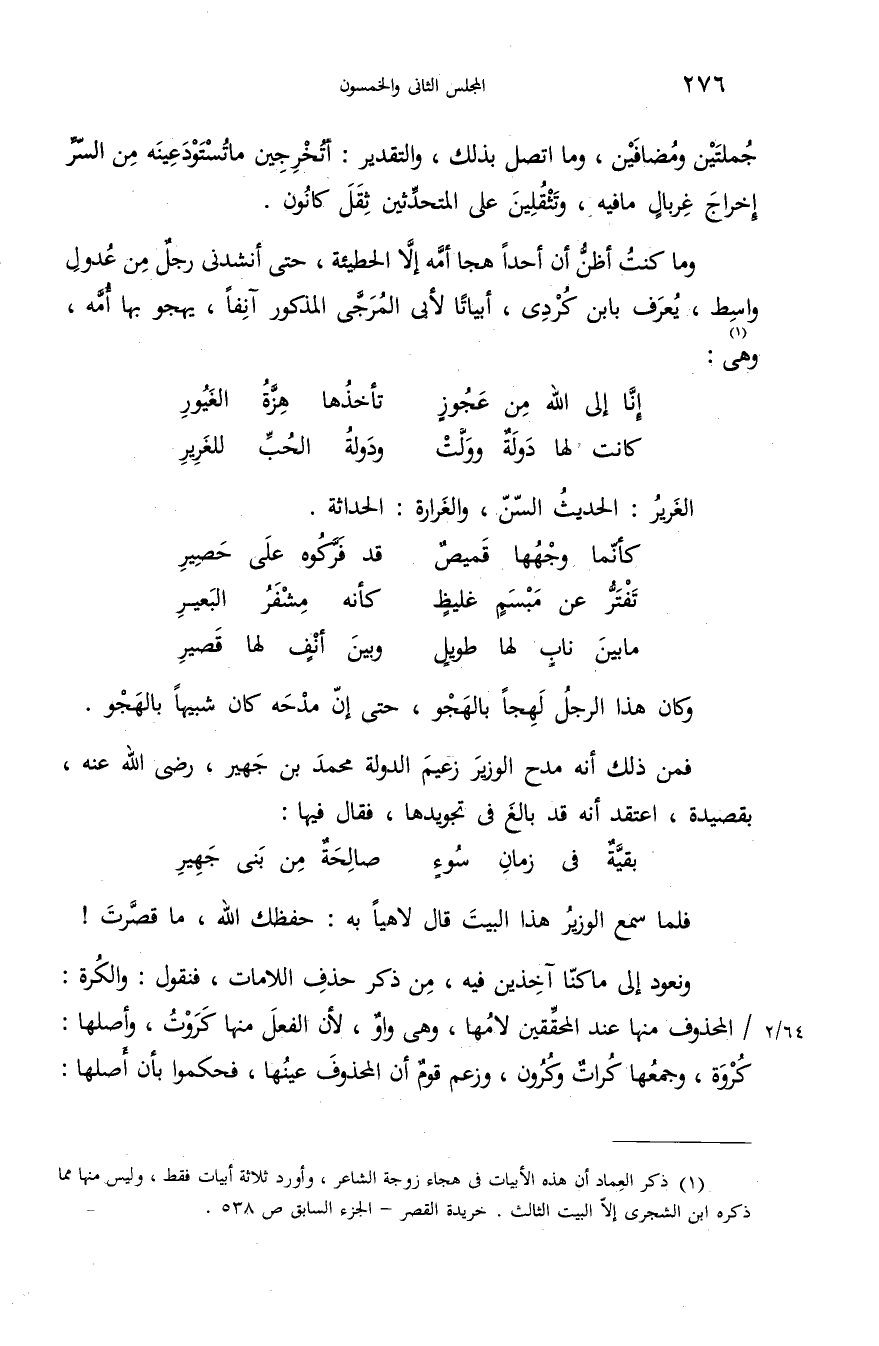 ٢٧٦ المجلس الثانى والخمسون
جُملتَيْن ومُضافَيْن ، وما اتصل بذلك ، والتقدير : أتُخْرِجِين ماتُسْتَوْدَعِينَه مِن السرِّ
إخراجَ غِربالٍ مافيه ، وتَثْقُلِينَ على المتحدِّثين ثِقَلَ كانُون .
وما كنتُ أظنُّ أن أحداً هجا أمَّه إلَّا الحطيئة ، حتى أنشدنى رجلٌ مِن عُدولِ
واسِط ، يُعرَف بابن كُرْدِى ، أبياتًا لأبى المُرَجَّى المذكور آنِفاً ، يهجو بها أُمَّه ،
وهى (١) :
إنَّا إلى الله مِن عَجُوزٍ تأخذُها هِزَّةُ الغَيُورِ
كانت لها دَولَةٌ وولَّتْ ودَولةُ الحُبِّ للغَرِيرِ
الغَرِيرُ : الحديثُ السّنّ ، والغَرارة : الحداثة .
كأنّما وجْهُها قَميصٌ قد فَرَّكُوه علَى حَصِيرِ
تَفْتَرُّ عن مَبْسَمٍ غليظٍ كأنه مِشْفَرُ البَعيرِ
مابينَ نابٍ لها طويلٍ وبينَ أنْفٍ لها قَصيرِ
وكان هذا الرجلُ لَهِجاً بالهَجْو ، حتى إنّ مدْحَه كان شبيهاً بالهَجْو .
فمن ذلك أنه مدح الوزيرَ زعيمَ الدولة محمدَ بن جَهير ، رضى الله عنه ،
بقصيدة ، اعتقد أنه قد بالغَ فى تجويدها ، فقال فيها :
بقيَّةٌ فى زمانِ سُوءٍ صالِحَةٌ مِن بَنى جَهِيرِ
فلما سمع الوزيرُ هذا البيتَ قال لاهياً به : حفظك الله ، ما قصَّرتَ !
ونعود إلى ماكنّا آخِذين فيه ، مِن ذكر حذفِ اللامات ، فنقول : والكُرة :
٢/٦٤ / المحذوف منها عند المحقِّقين لامُها ، وهى واوٌ ، لأن الفعلَ منها كَرَوْتُ ، وأصلها :
كُرْوَة ، وجمعُها كُراتٌ وكُرُون ، وزعم قومٌ أن المحذوفَ عينُها ، فحكموا بأن أصلها :
(١) ذكر العِماد أن هذه الأبيات فى هجاء زوجة الشاعر ، وأورد ثلاثة أبيات فقط ، وليس منها مما
ذكره ابن الشجرى إلاّ البيت الثالث . خريدة القصر – الجزء السابق ص ٥٣٨ .